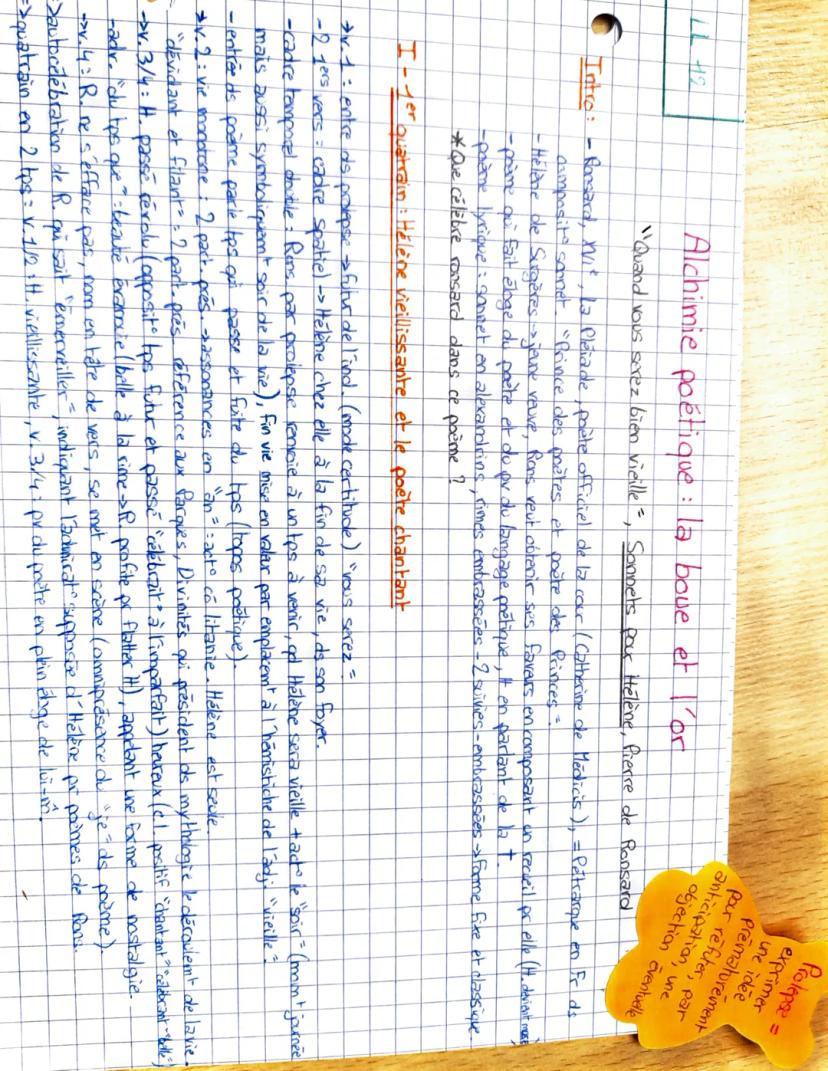 LL 12
Alchimie poétique : la boue et l'or
"Quand vous serez bien vieille", Sonnets pour Hélène, Pierre de Ronsard
Prolepse =
exprimer
une idée
prématurément
pour réfuter par
anticipation, une
objection éventuelle
Intro : - Ronsard, XVIe, la Pléiade, poète officiel de la cour (Catherine de Médicis), = Pétrarque en Fr ds
composit° sonnet. "Prince des poètes et poète des Princes"
- Hélène de Surgères → jeune veuve, Rons veut obtenir ses faveurs en composant un recueil pr elle (H. devient muse)
- poème qui fait éloge du poète et du pv du langage poétique, H en parlant de la †.
- poème lyrique : sonnet en alexandrins, rimes embrassées - 2 suivies - embrassées → forme fixe et classique.
* Que célèbre ronsard dans ce poème ?
I - 1er quatrain : Hélène vieillissante et le poète chantant
→ v. 1 : entre ds prolepse → futur de l'ind. (mode certitude) "vous serez"
- 2 1ers vers = cadre spatiel → Hélène chez elle à la fin de sa vie, ds son foyer.
- cadre temporel double : Rons. par prolepse renvoie à un tps à venir, qd Hélène sera vieille + act° le "soir" (momt journée
mais aussi symboliquemt soir de la vie), fin vie mise en valeur par emplacemt à l'hémistiche de l'adj "vieille"
- entrée ds poème parle tps qui passe et fuite du tps (topos poétique).
→ v. 2 : vie monotone : 2 part. prés → assonances en "an" = act° cô litanie. Hélène est seule.
"dévidant et filant" = 2 part. prés référence aux Parques, Divinités qui président ds mythologie le déroulemt de la vie.
→ v. 3/4 : H. passé révolu (opposit° tps futur et passé "célébrait" à l'imparfait) heureux (c.l. positif "chantant" "célébrait" "belle")
- adv. "du tps que" = beauté évanouie (belle à la rime → R profite pr flatter H), appelant une forme de nostalgie.
→ v. 4 : R. ne s'efface pas, nom en tête de vers, se met en scène (omniprésence du "je" ds poème).
→ autocélébration de R. qui sait "émerveiller", indiquant l'admirat° supposée d'Hélène pr poèmes de Rons.
=> quatrain en 2 tps = v. 1/2 : H. vieillissante, v. 3/4 : pv du poète en plein éloge de lui-m̂.